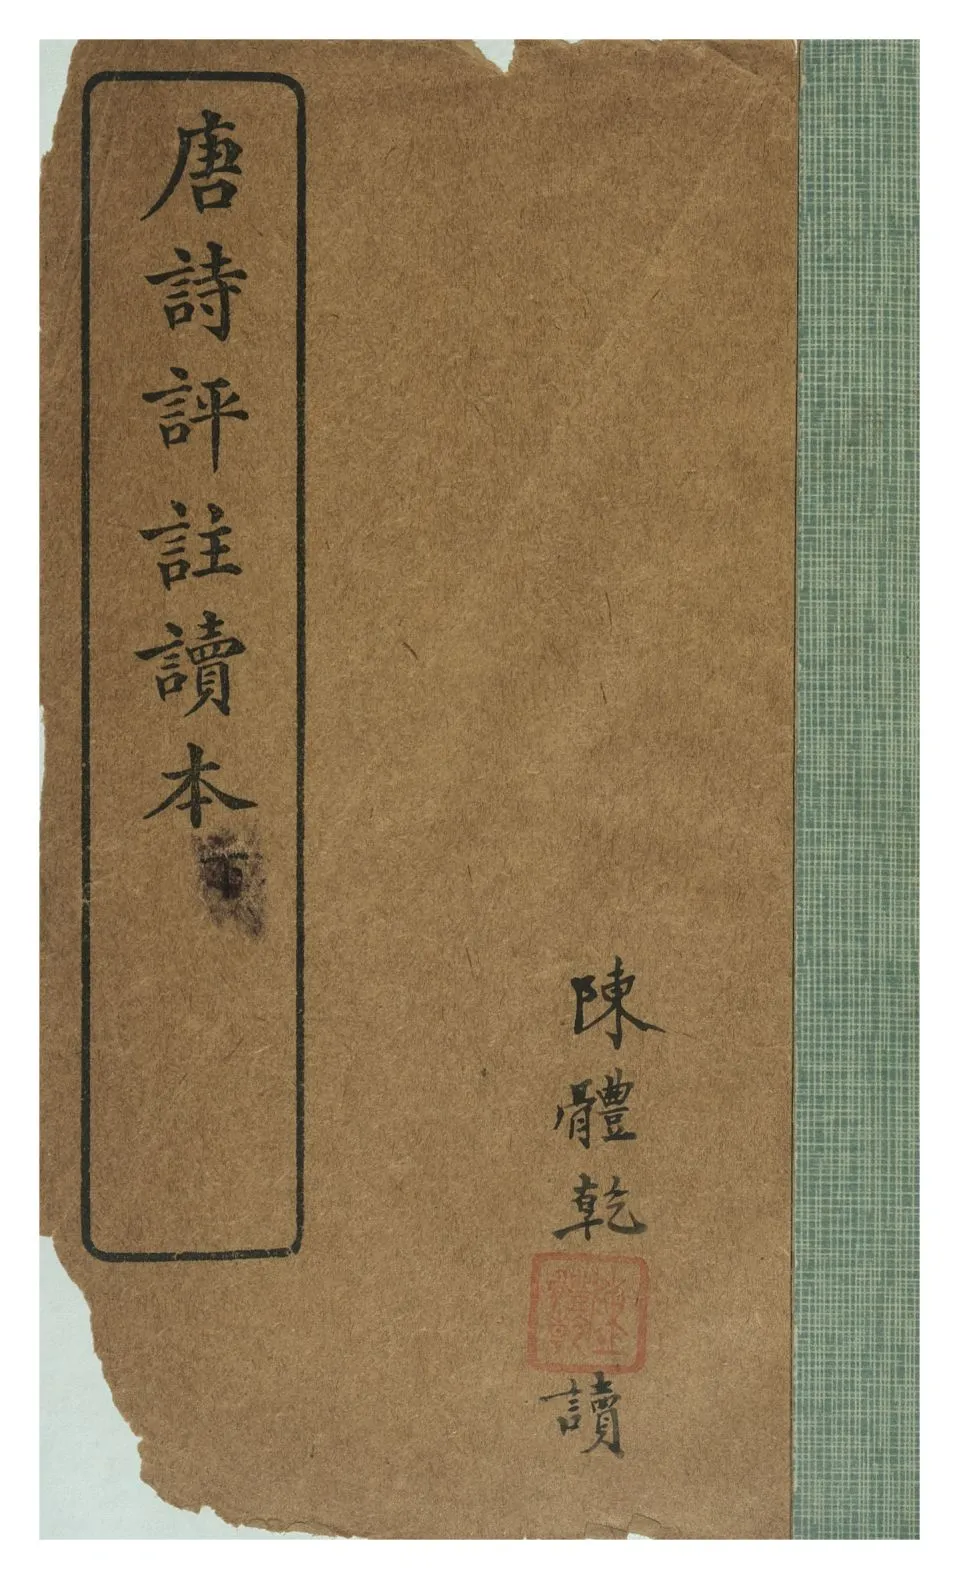 唐詩評註讀本
下
陳體乾
讀